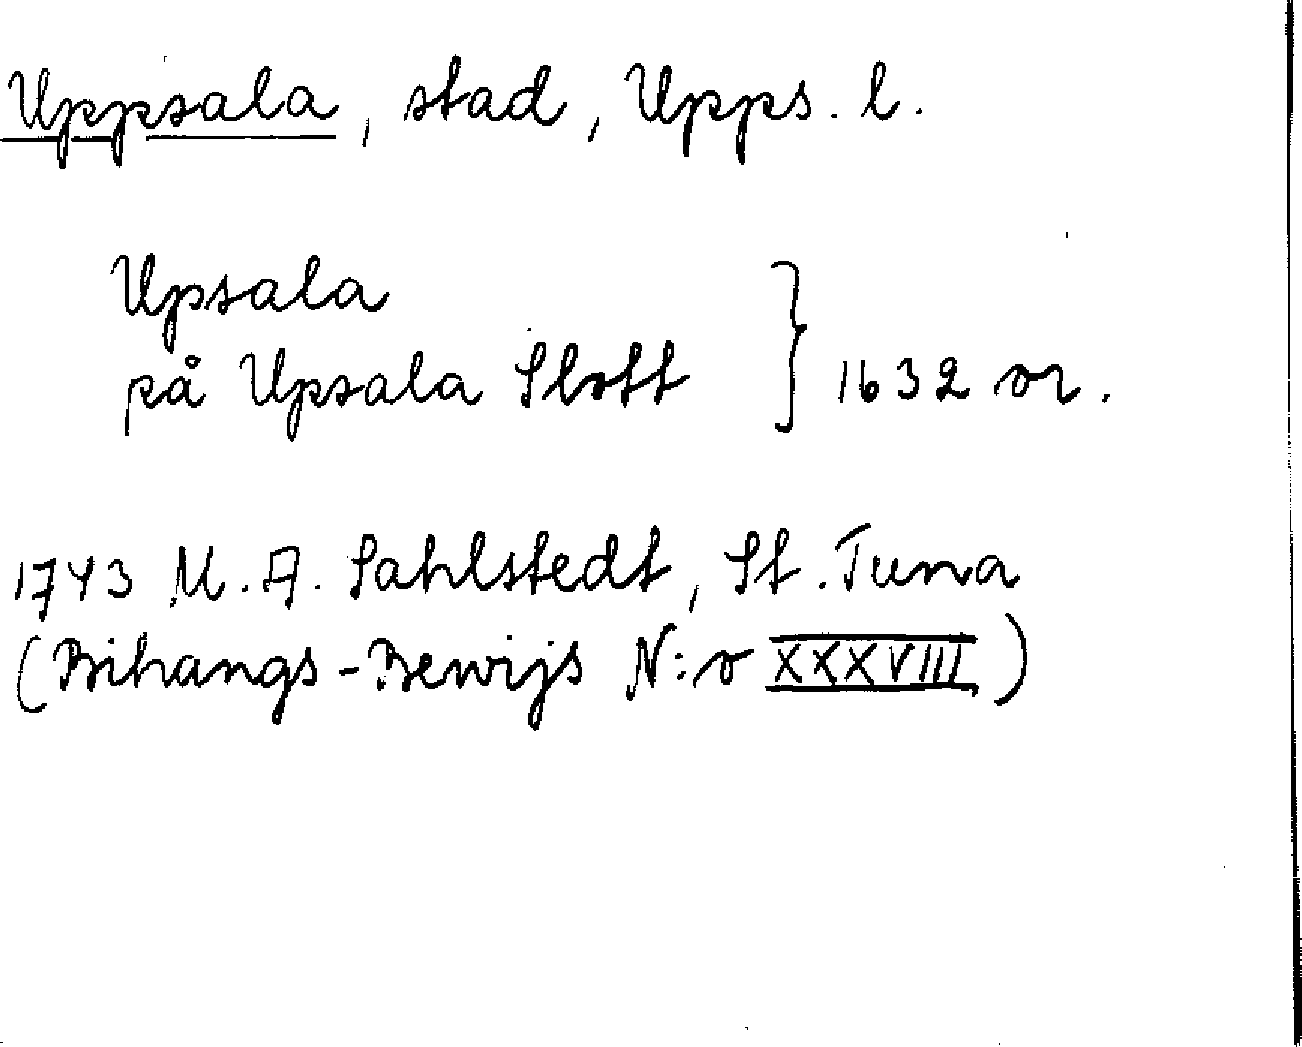 Uppsala, stad, Upps. l.
Upsala
på Upsala Slott } 1632 or.
1743 M. A. Sahlstedt, St. Tuna
(Bihangs-Bewijs N:o XXXVIII)